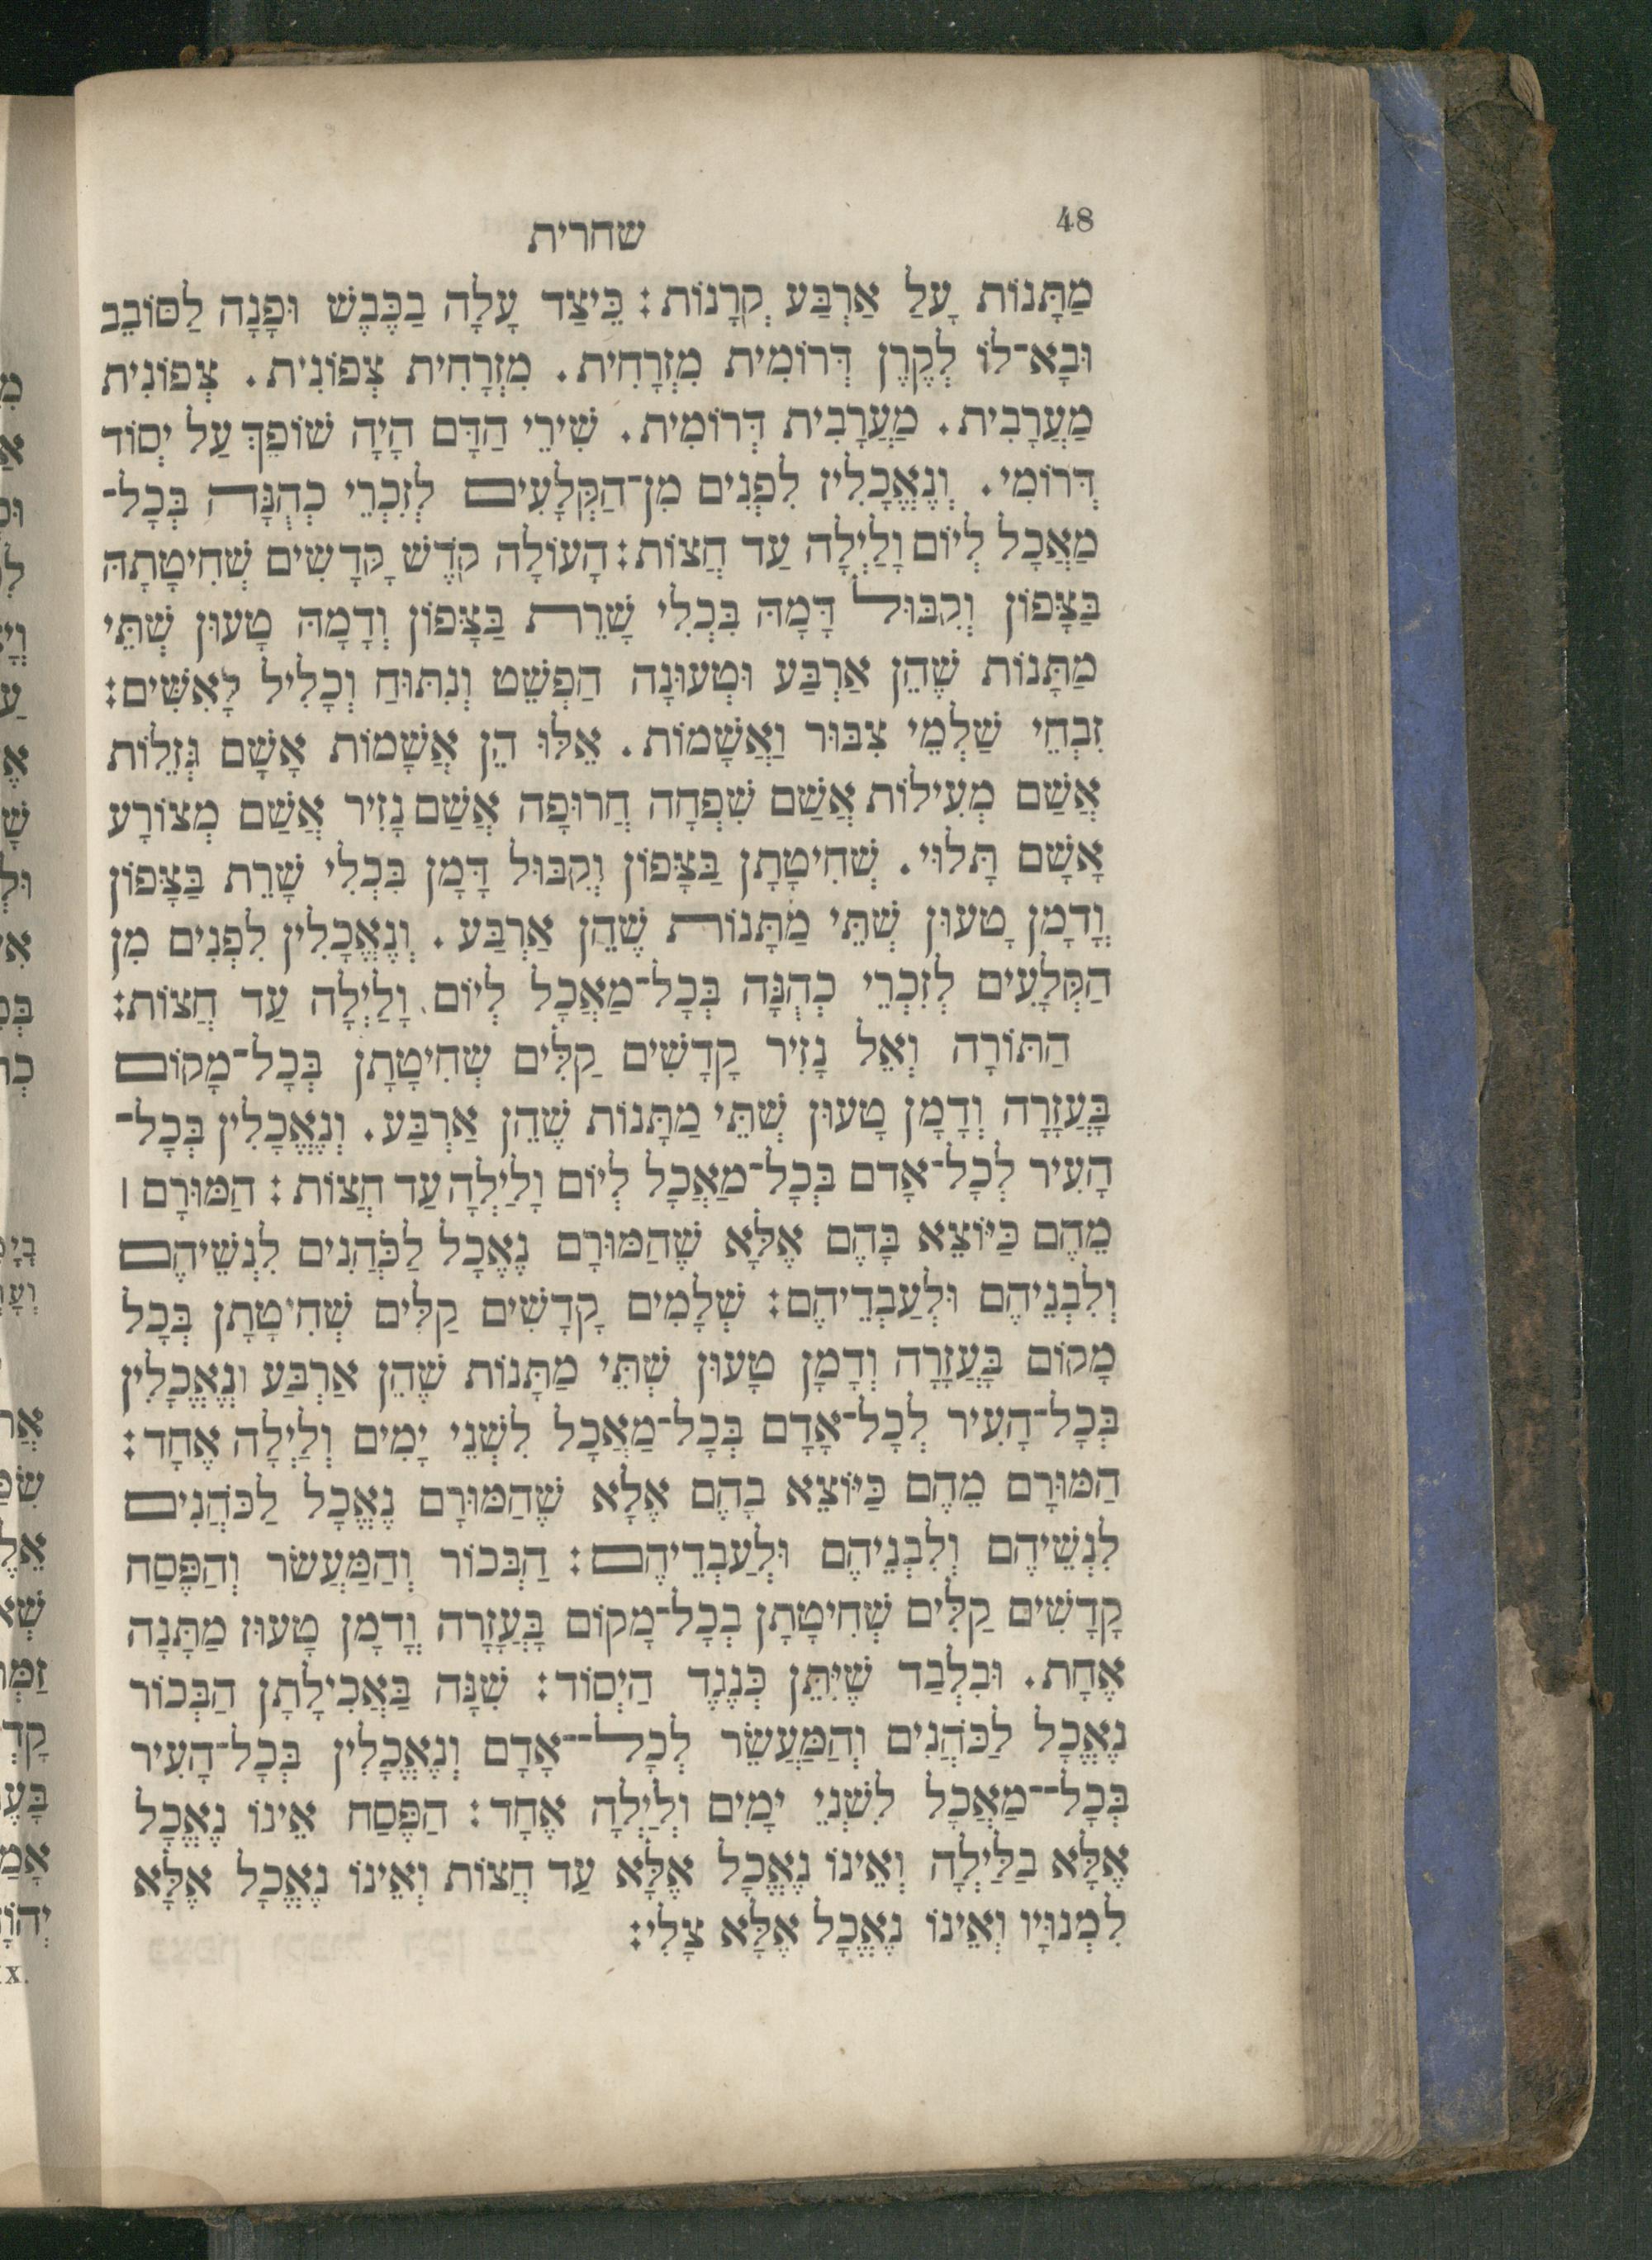 48
שחרית
מַתָּנוֹת עָלַ אַרְבַּע קְרָנוֹת׃ כֵּיצַד עָלָה בַכֶּבֶשׁ וּפָנָה לַסּוֹבֵב
וּבָא־לוֹ לְקֶרֶן דְּרוֹמִית מִזְרָחִית. מִזְרָחִית צְפוֹנִית. צְפוֹנִית
מַעֲרָבִית. מַעֲרָבִית דְּרוֹמִית. שִׁירֵי הַדָּם הָיָה שׁוֹפֵךְ עַל יְסוֹד
דְּרוֹמִי. וְנֶאֱכָלִין לִפְנִים מִן־הַקְּלָעִים לְזִכְרֵי כְהֻנָּה בְּכָל־
מַאֲכָל לְיוֹם וָלַיְלָה עַד חֲצוֹת׃ הָעוֹלָה קֹדֶשׁ קָּדָשִׁים שְׁחִיטָתָהּ
בַּצָּפוֹן וְקִבּוּל דָּמָהּ בִּכְלִי שָׁרֵת בַּצָּפוֹן וְדָמָהּ טָעוּן שְׁתֵּי
מַתָּנוֹת שֶׁהֵן אַרְבַּע וּטְעוּנָה הַפְשֵׁט וְנִתּוּחַ וְכָלִיל לָאִשִּׁים׃
זִבְחֵי שַׁלְמֵי צִבּוּר וַאֲשָׁמוֹת. אֵלּוּ הֵן אֲשָׁמוֹת אָשָׁם גְּזֵלוֹת
אֲשַׁם מְעִילוֹת אֲשַׁם שִׁפְחָה חֲרוּפָה אֲשַׁם נָזִיר אֲשַׁם מְצוֹרָע
אָשָׁם תָּלוּי. שְׁחִיטָתָן בַּצָּפוֹן וְקִבּוּל דָּמָן בִּכְלִי שָׁרֵת בַּצָּפוֹן
וְדָמָן טָעוּן שְׁתֵּי מַתָּנוֹת שֶׁהֵן אַרְבַּע. וְנֶאֱכָלִין לִפְנִים מִן
הַקְּלָעִים לְזִכְרֵי כְהֻנָּה בְּכָל־מַאֲכָל לְיוֹם וָלַיְלָה עַד חֲצוֹת׃
הַתּוֹרָה וְאֵל נָזִיר קָדָשִׁים קַלִּים שְׁחִיטָתָן בְּכָל־מָקוֹם
בָּעֲזָרָה וְדָמָן טָעוּן שְׁתֵּי מַתָּנוֹת שֶׁהֵן אַרְבַּע. וְנֶאֱכָלִין בְּכָל־
הָעִיר לְכָל־אָדם בְּכָל־מַאֲכָל לְיוֹם וָלַיְלָה עַד חֲצוֹת׃ הַמּוּרָם ׀
מֵהֶם כַּיּוֹצֵא בָּהֶם אֶלָּא שֶׁהַמּוּרָם נֶאֱכָל לַכֹּהֲנִים לִנְשֵׁיהֶם
וְלִבְנֵיהֶם וּלְעַבְדֵיהֶם׃ שְׁלָמִים קָדָשִׁים קַלִּים שְׁחִיטָתָן בְּכָל
מָקוֹם בָּעֲזָרָה וְדָמָן טָעוּן שְׁתֵּי מַתָּנוֹת שֶׁהֵן אַרְבַּע וְנֶאֱכָלִין
בְּכָל־הָעִיר לְכָל־אָדָם בְּכָל־מַאֲכָל לִשְׁנֵי יָמִים וְלַיְלָה אֶחָד׃
הַמּוּרָם מֵהֶם כַּיּוֹצֵא בָהֶם אֶלָּא שֶׁהַמּוּרָם נֶאֱכָל לַכֹּהֲנִים
לִנְשֵׁיהֶם וְלִבְנֵיהֶם וּלְעַבְדֵיהֶם׃ הַבְּכוֹר וְהַמַּעֲשֵׂר וְהַפֶּסַח
קָדָשִׁים קַלִּים שְׁחִיטָתָן בְּכָל־מָקוֹם בָּעֲזָרָה וְדָמָן טָעוּן מַתָּנָה
אֶחָת. וּבִלְבַד שֶׁיִּתֵּן כְּנֶגֶד הַיְסוֹד׃ שִׁנָּה בַּאֲכִילָתָן הַבְּכוֹר
נֶאֱכָל לַכֹּהֲנִים וְהַמַּעֲשֵׂר לְכָל־אָדָם וְנֶאֱכָלִין בְּכָל־הָעִיר
בְּכָל־מַאֲכָל לִשְׁנֵי יָמִים וְלַיְלָה אֶחָד׃ הַפֶּסַח אֵינוֹ נֶאֱכָל
אֶלָּא בַלַּיְלָה וְאֵינוֹ נֶאֱכָל אֶלָּא עַד חֲצוֹת וְאֵינוֹ נֶאֱכָל אֶלָּא
לִמְנוּיָו וְאֵינוֹ נֶאֱכָל אֶלָּא צָלִי׃